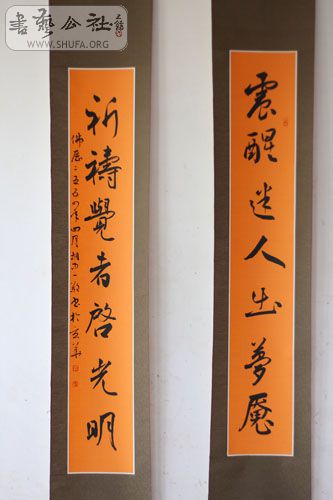 書藝公社
WWW.SHUFA.ORG
震醒迷人出夢魘
祈禱覺者啓光明
佛曆二五五四年四月